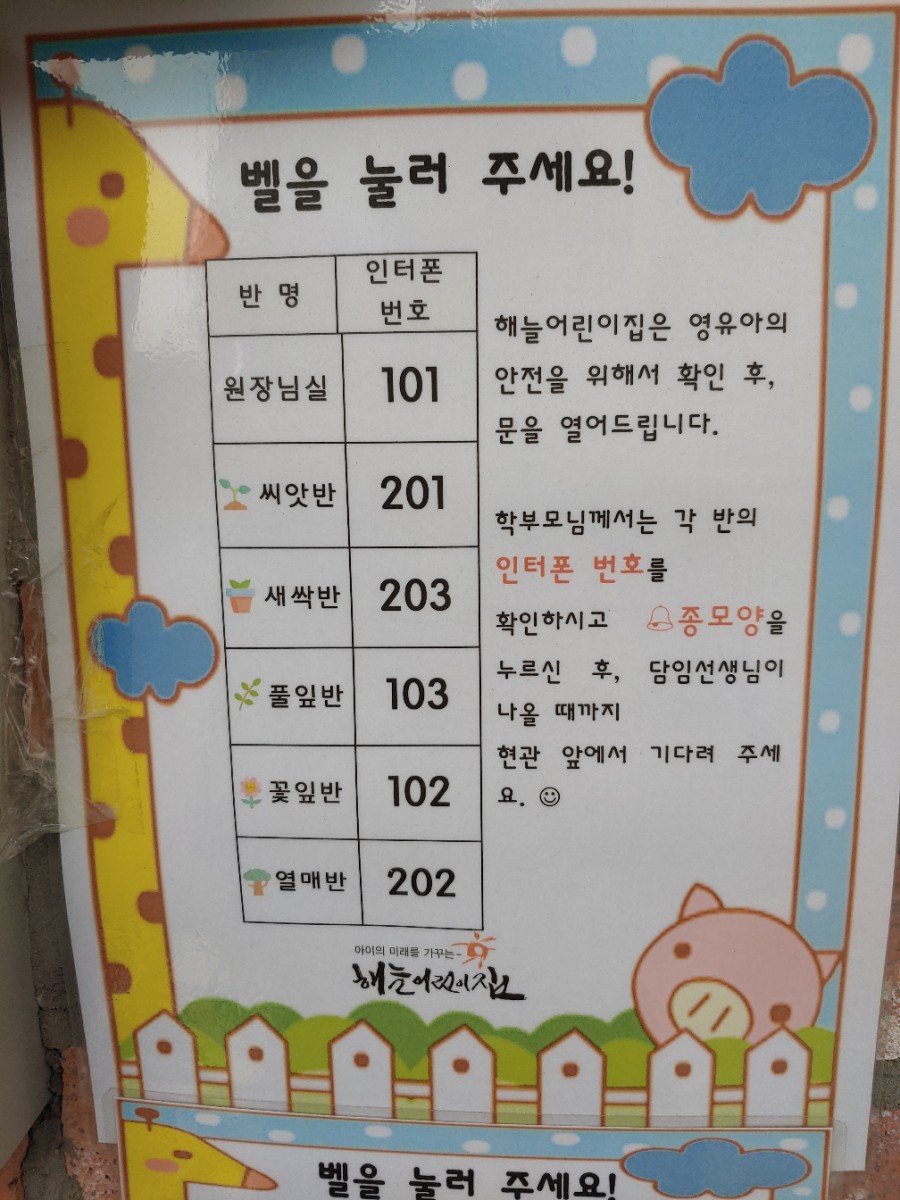 벨을 눌러 주세요!
반 명 인터폰 번호
원장님실 101
씨앗반 201
새싹반 203
풀잎반 103
꽃잎반 102
열매반 202
해늘어린이집은 영유아의
안전을 위해서 확인 후,
문을 열어드립니다.
학부모님께서는 각 반의
인터폰 번호를
확인하시고 종모양을
누르신 후, 담임선생님이
나올 때까지
현관 앞에서 기다려 주세
요. ☺
아이의 미래를 가꾸는~
해늘어린이집
벨을 눌러 주세요!